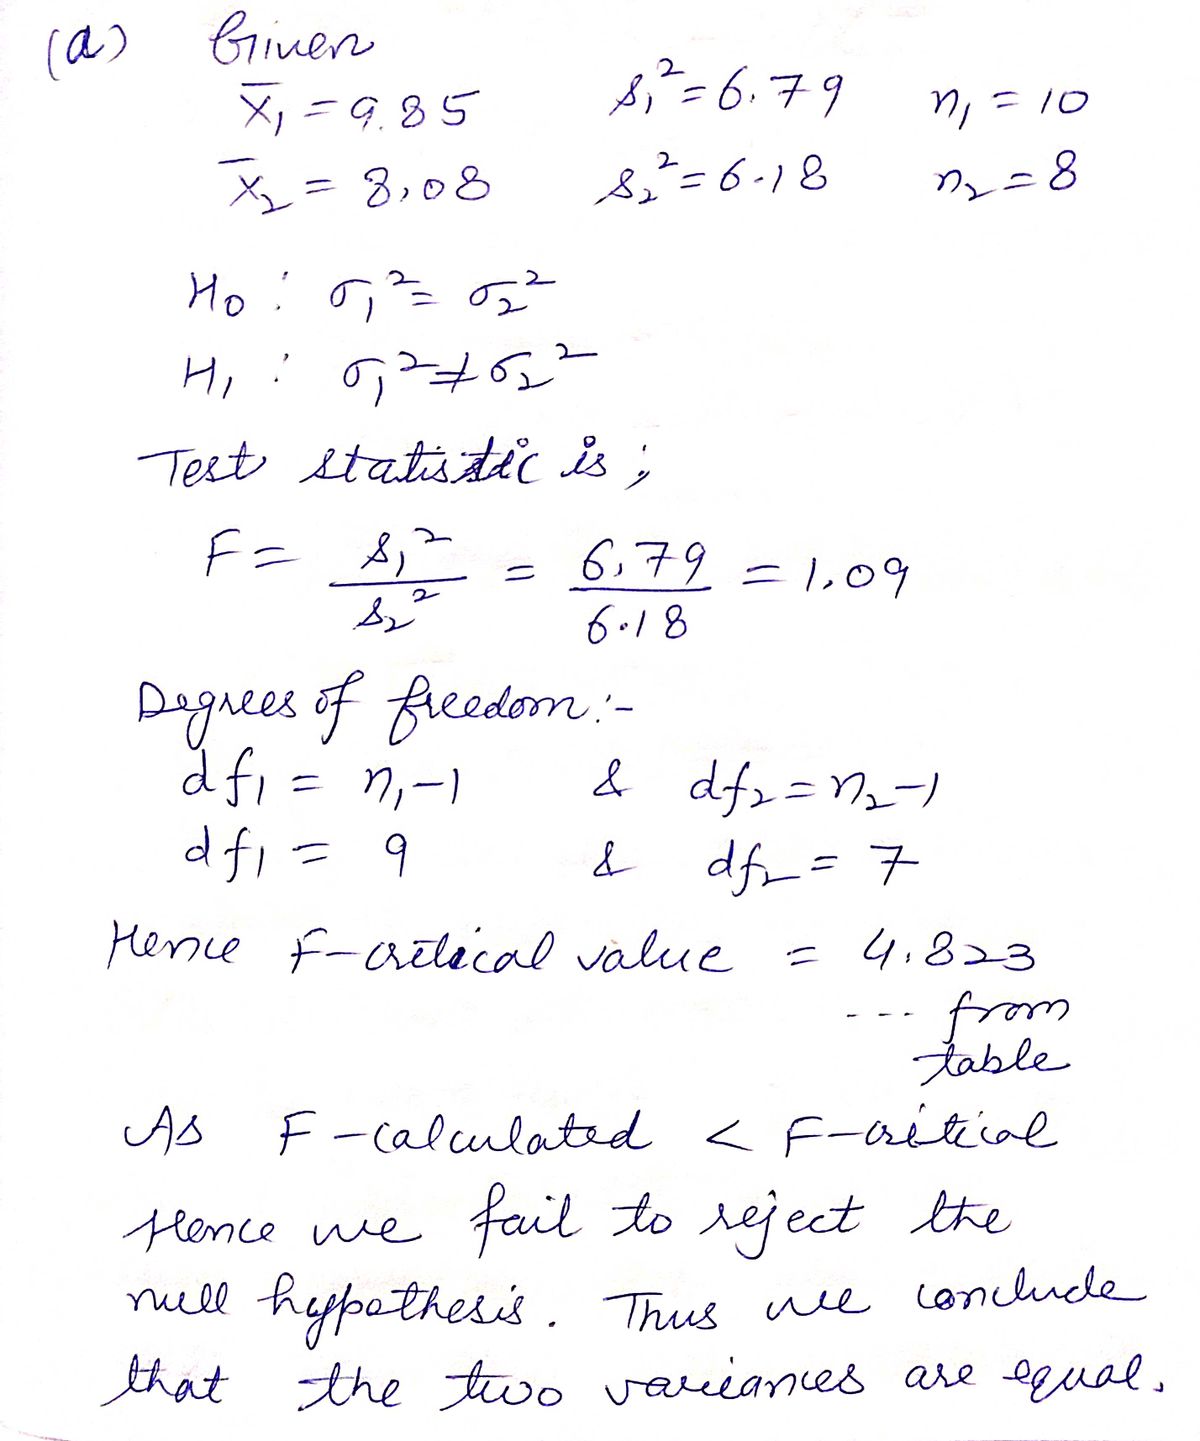 (a) Given
x̄₁ = 9.85 s₁² = 6.79 n₁ = 10
x̄₂ = 8.08 s₂² = 6.18 n₂ = 8
H₀ : σ₁² = σ₂²
H₁ : σ₁² ≠ σ₂²
Test statistic is ;
F = s₁²/s₂² = 6.79/6.18 = 1.09
Degrees of freedom :-
df₁ = n₁-1 & df₂ = n₂-1
df₁ = 9 & df₂ = 7
Hence F-critical value = 4.823
--- from
table
As F-calculated < F-critical
Hence we fail to reject the
null hypothesis. Thus we conclude
that the two variances are equal.